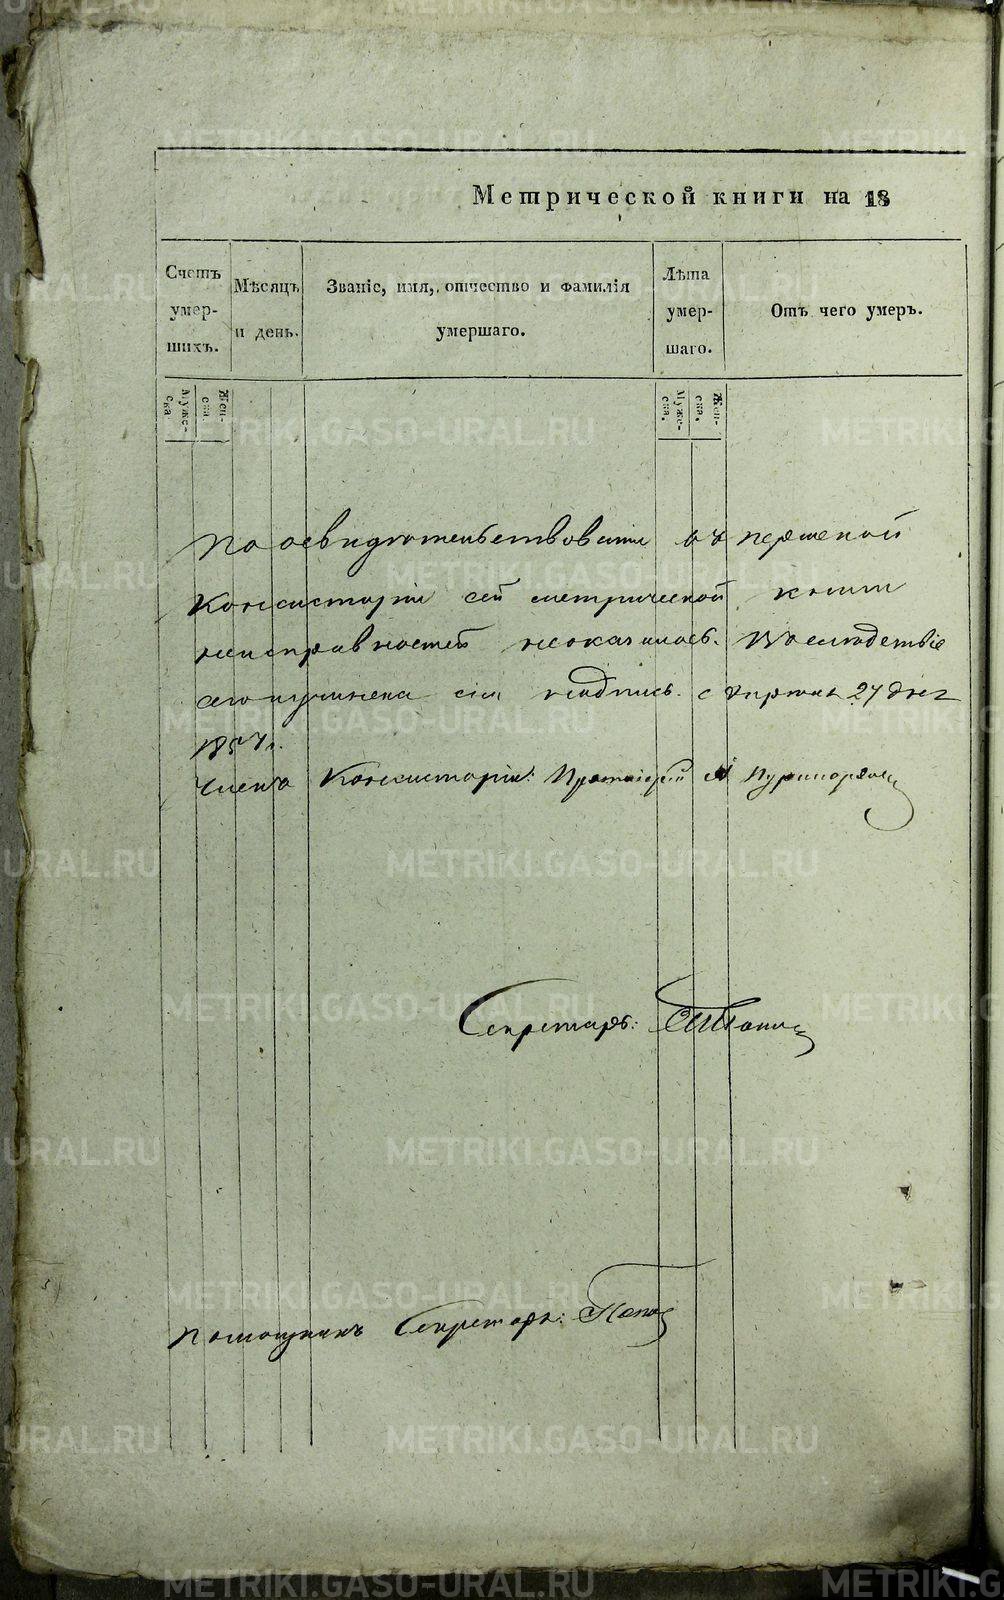 Метрической книги на 18
Счетъ умер-шихъ.
Мѣсяцъ и день.
Званіе, имя, отчество и фамилія умершаго.
Лѣта умер-шаго.
Отъ чего умеръ.
Муже-ска.
Жен-ска.
Муже-ска,
Жен-ска,
По освидѣтельствованіи въ пермской
Консисторіи сей метрической книги
неисправностей неоказалось. Вследствіе
сего учинена сія надпись. 27 дня
1857 г.
Членъ Консисторіи: Протоіерей
Секретарь:
Помощникъ Секретаря: Попов
METRIKI.GASO-URAL.RU